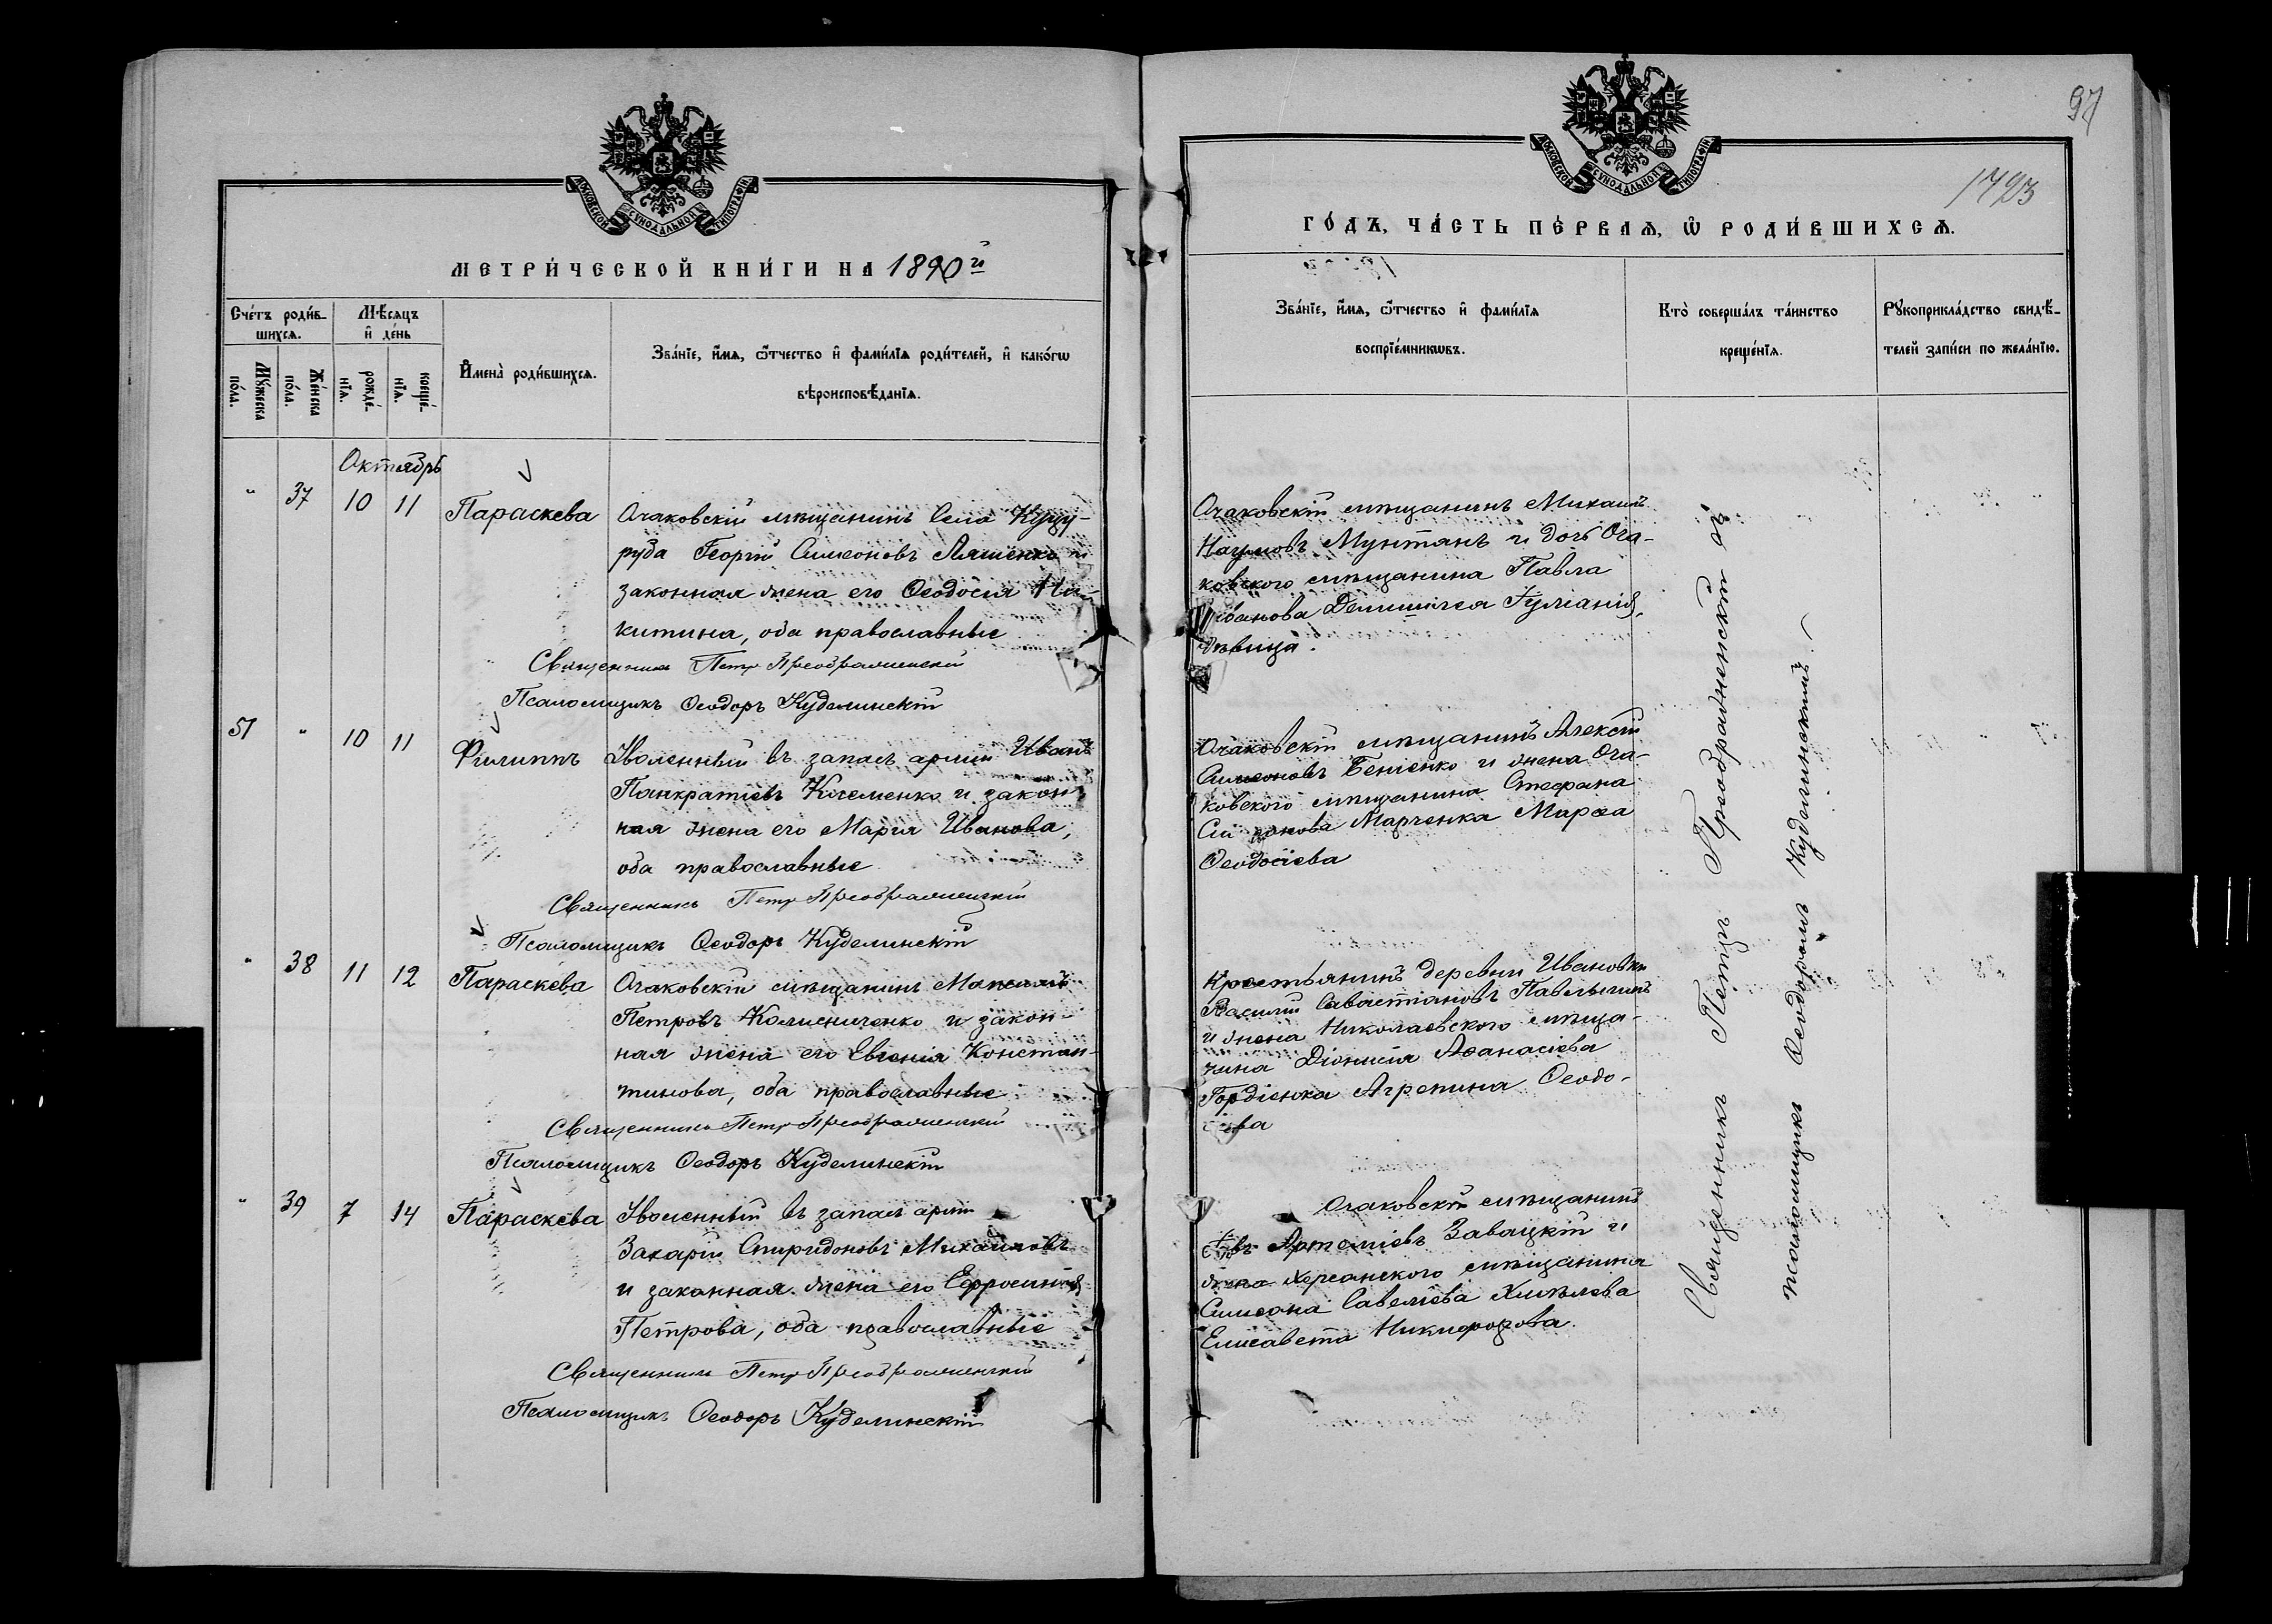 МОСКОВСКОЙ СѴНОДАЛЬНОЙ ТИПОГРАФІИ
МЕТРИ́ЧЕСКОЙ КНИ́ГИ НА 1890й
Сче́тъ роди́в-
шихсѧ.
Мѣ́сѧцъ
и҆ де́нь
Мꙋ́жеска
по́ла.
Же́нска
по́ла.
рожде́-
нїѧ.
креще́-
нїѧ.
И҆мена̀ роди́вшихсѧ.
Зва́нїе, и҆́мѧ, ѻ҆́тчество и҆ фами́лїѧ роди́телей, и҆ како́гѡ
вѣроисповѣ́данїѧ.
Октябрь
" 37 10 11 Параскева
Очаковскій мѣщанинъ села Куцу-
руба Георгій Симеоновъ Ляшенко и
законная жена его Ѳеодосія Ни-
китина, оба православные
Священникъ Петръ Преображенскій
Псаломщикъ Ѳеодоръ Куделинскій
51 " 10 11 Филиппъ
Уволенный въ запасъ арміи Иванъ
Панкратіевъ Клеменко и закон-
ная жена его Марія Иванова,
оба православные
Священникъ Петръ Преображенскій
Псаломщикъ Ѳеодоръ Куделинскій
" 38 11 12 Параскева
Очаковскій мѣщанинъ Максимъ
Петровъ Колисниченко и закон-
ная жена его Евгенія Констан-
тинова, оба православные
Священникъ Петръ Преображенскій
Псаломщикъ Ѳеодоръ Куделинскій
" 39 7 14 Параскева
Уволенный въ запасъ арміи
Захарій Спиридоновъ Михайловъ
и законная жена его Ефросинія
Петрова, оба православные
Священникъ Петръ Преображенскій
Псаломщикъ Ѳеодоръ Куделинскій
97
1723
МОСКОВСКОЙ СѴНОДАЛЬНОЙ ТИПОГРАФІИ
ГО́ДЪ, ЧА́СТЬ ПЕ́РВАѦ, Ѡ҆ РОДИ́ВШИХСѦ.
Зва́нїе, и҆́мѧ, ѻ҆́тчество и҆ фами́лїѧ
воспрїе́мникѡвъ.
Кто̀ соверша́лъ та́инство
креще́нїѧ.
Рꙋкоприкла́дство свидѣ́-
телей за́писи по жела́нїю.
Очаковскій мѣщанинъ Михаилъ
Наумовъ Мунтянъ и дочь Оча-
ковского мѣщанина Павла
Иванова
дѣвица.
Очаковскій мѣщанинъ Алексій
Симеоновъ и жена Оча-
ковского мѣщанина Стефана
Марченка Марѳа
Ѳеодосіева
Крестьянинъ деревни Ивановки
Василій Савастіановъ
и жена Николаевского мѣща-
нина Діонисія Аѳанасіева
Гордіенка Агрепина Ѳеодо-
Очаковскій мѣщанинъ
Артеміевъ Завацкій и
жена Херсонского мѣщанина
Симеона Савеліева Хмѣлева
Елисавета Никифорова.
Священникъ Петръ Преображенскій съ
псаломщикъ Ѳеодоромъ Куделинскимъ